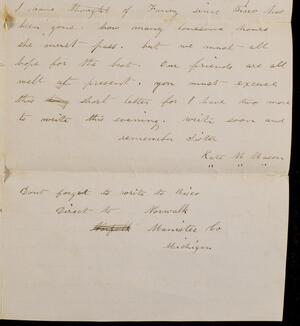 I have thought of Fanny since Bisco has
been gone. how many lonesome hours
she must pass. but we must all
hope for the best. Our friends are all
well at present. you must excuse
this short letter for I have two more
to write this evening. Write soon and
remember Sister
Kate M Mason
Dont forget to write to Bisco
Direct to Norwalk
Norfolk Manistee Co
Michigan